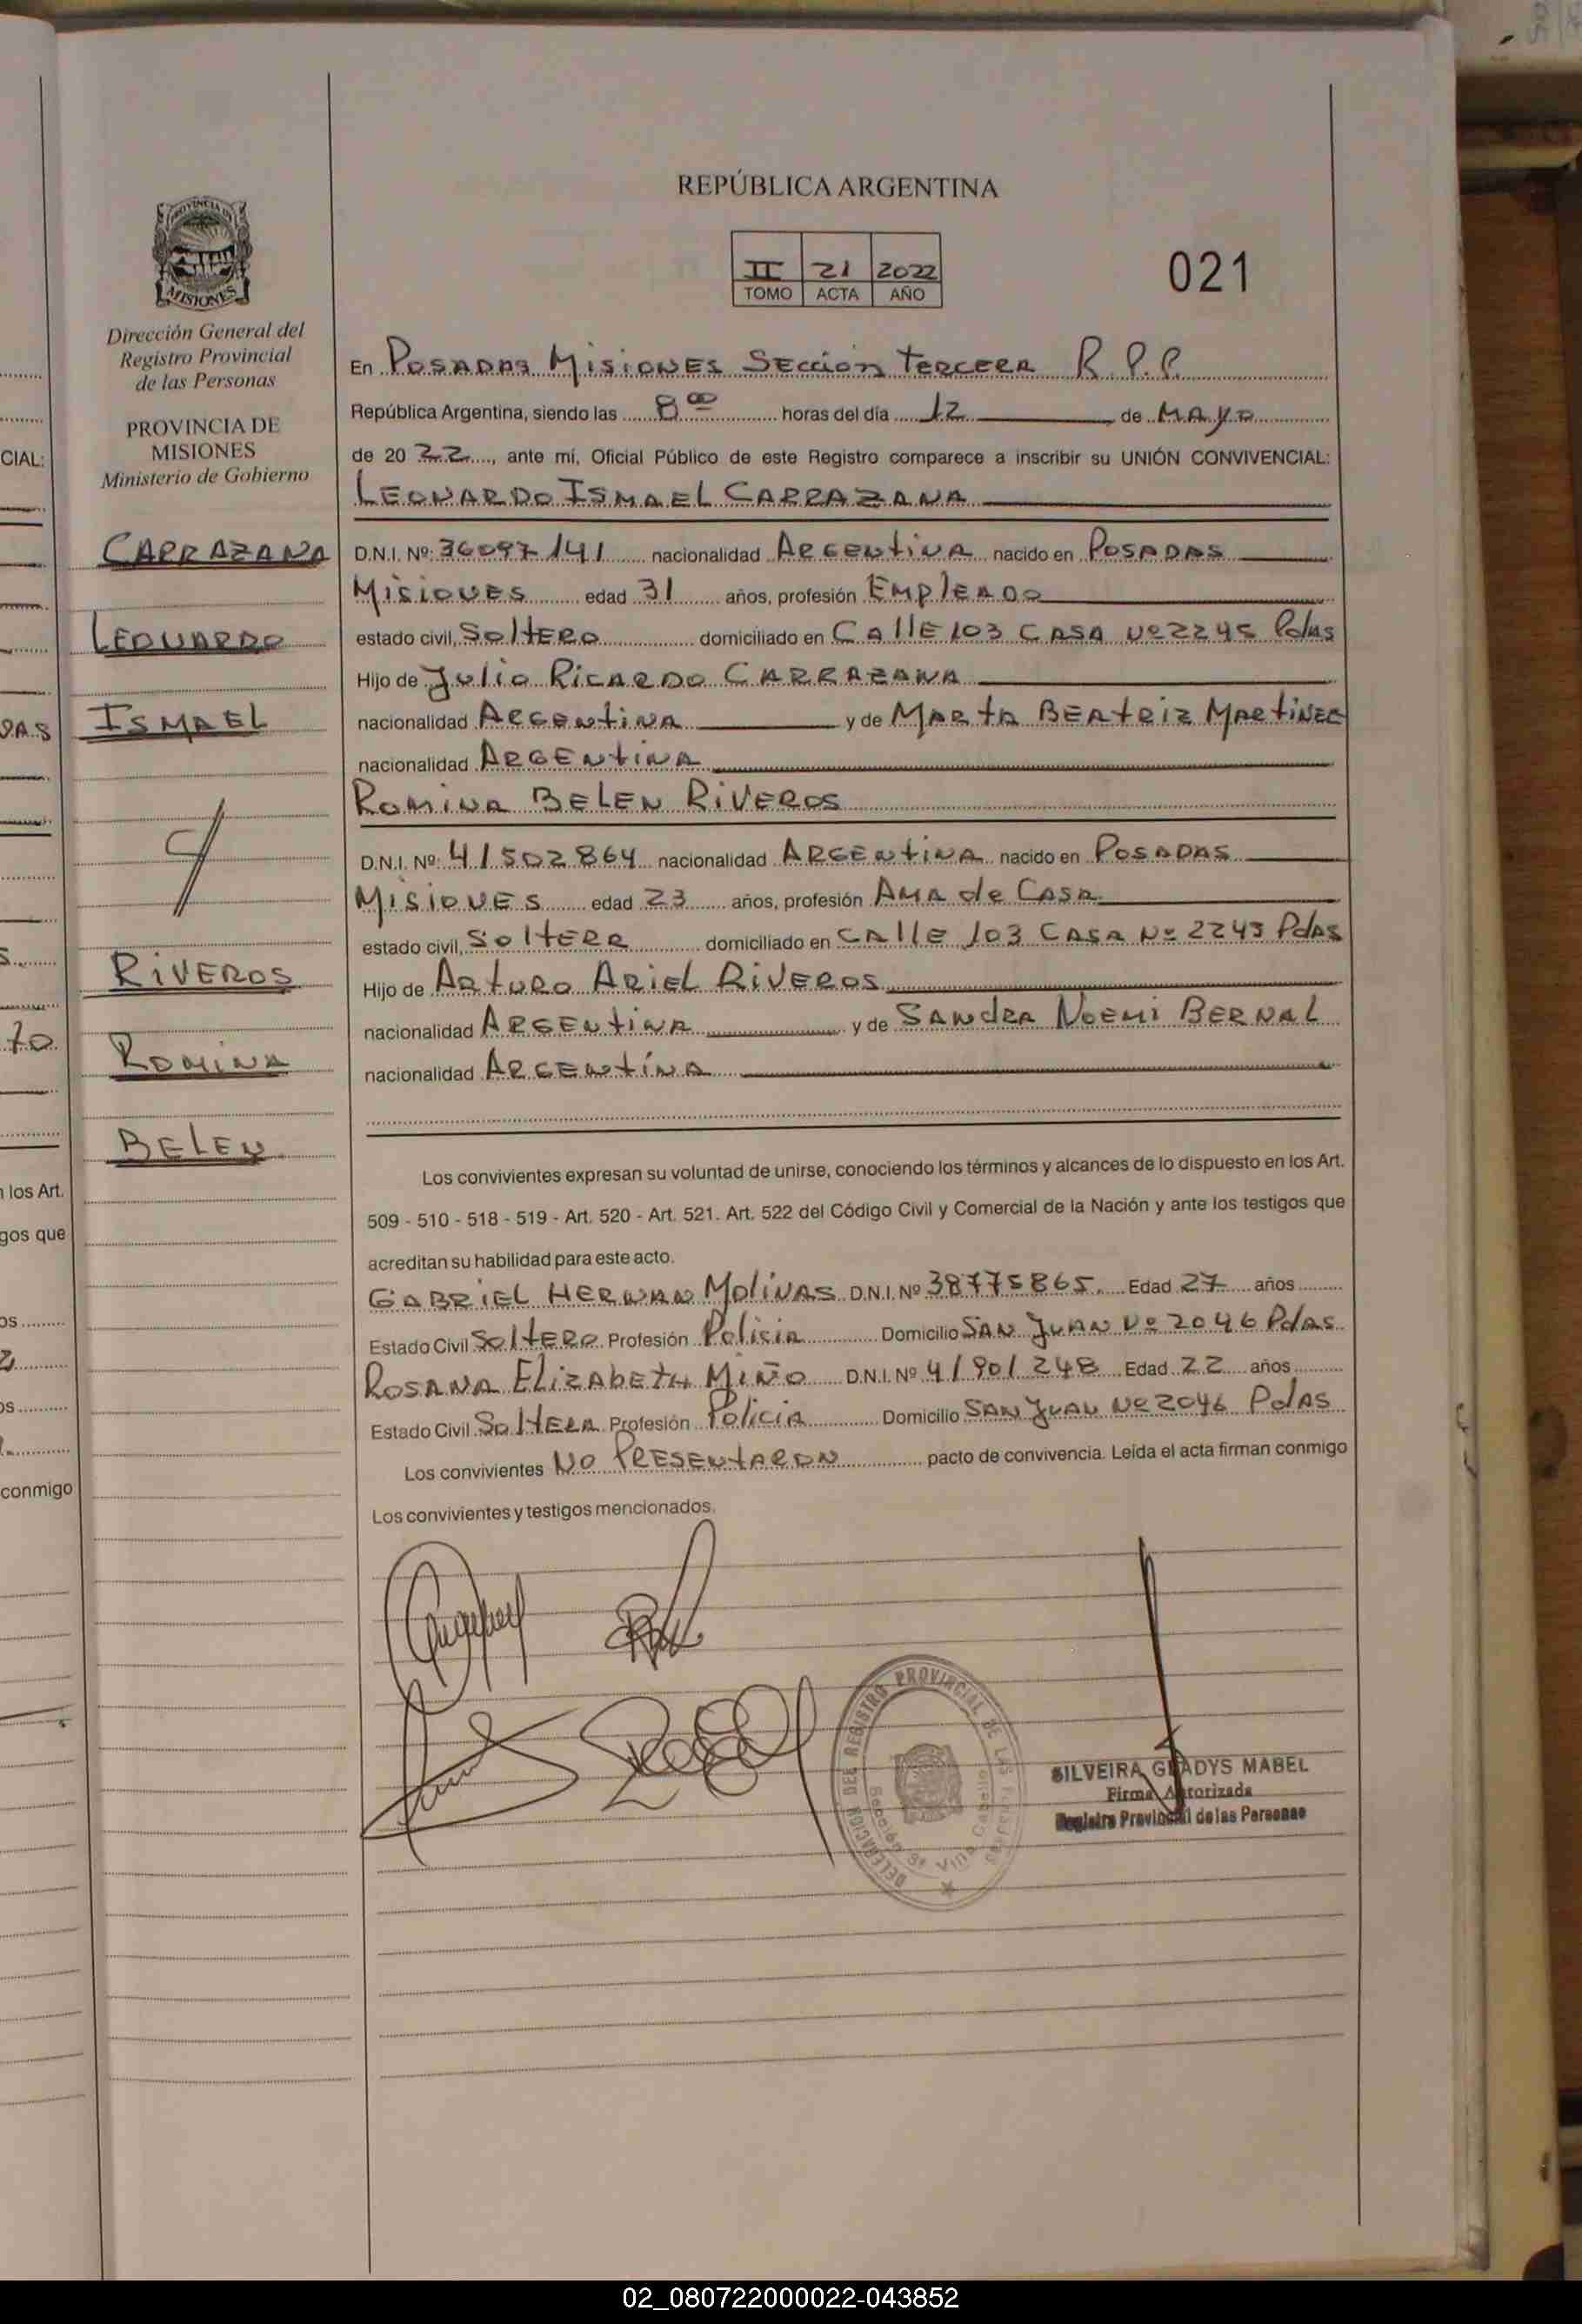 REPÚBLICA ARGENTINA
II 21 2022
TOMO ACTA AÑO
021
PROVINCIA DE
MISIONES
Dirección General del
Registro Provincial
de las Personas
PROVINCIA DE
MISIONES
Ministerio de Gobierno
CARRAZANA
LEONARDO
ISMAEL
Y
RIVEROS
ROMINA
BELEN
En POSADAS MISIONES SECCIÓN TERCERA R.P.P.
República Argentina, siendo las 8 00 horas del día 12 de MAYO
de 20 22, ante mí, Oficial Público de este Registro comparece a inscribir su UNIÓN CONVIVENCIAL:
LEONARDO ISMAEL CARRAZANA
D.N.I. Nº: 36097141 nacionalidad ARGENTINA nacido en POSADAS
MISIONES edad 31 años, profesión EMPLEADO
estado civil, SOLTERO domiciliado en CALLE 103 CASA Nº 2245 Pdas
Hijo de JULIO RICARDO CARRAZANA
nacionalidad ARGENTINA y de MARTA BEATRIZ MARTINEZ
nacionalidad ARGENTINA
ROMINA BELEN RIVEROS
D.N.I. Nº: 41502864 nacionalidad ARGENTINA nacido en POSADAS
MISIONES edad 23 años, profesión AMA de CASA
estado civil, SOLTERA domiciliado en CALLE 103 CASA Nº 2245 PdAS
Hijo de ARTURO ARIEL RIVEROS
nacionalidad ARGENTINA y de SANDRA NOEMI BERNAL
nacionalidad ARGENTÍNA
Los convivientes expresan su voluntad de unirse, conociendo los términos y alcances de lo dispuesto en los Art.
509 - 510 - 518 - 519 - Art. 520 - Art. 521. Art. 522 del Código Civil y Comercial de la Nación y ante los testigos que
acreditan su habilidad para este acto.
GABRIEL HERNAN MOLINAS D.N.I. Nº 38775865. Edad 27 años
Estado Civil SOLTERO Profesión Policia Domicilio SAN JUAN Nº 2046 Pdas
ROSANA ELIZABETH MIÑO D.N.I. Nº 41901248 Edad 22 años
Estado Civil SOLTERA Profesión Policia Domicilio SAN JUAN Nº 2046 PdAS
Los convivientes NO PRESENTARON pacto de convivencia. Leída el acta firman conmigo
Los convivientes y testigos mencionados.
DELEGACION DEL REGISTRO PROVINCIAL DE LAS PERSONAS
SILVEIRA GLADYS MABEL
Firma Autorizada
Registro Provincial de las Personas
CIAL:
los Art.
gos que
conmigo
02_080722000022-043852